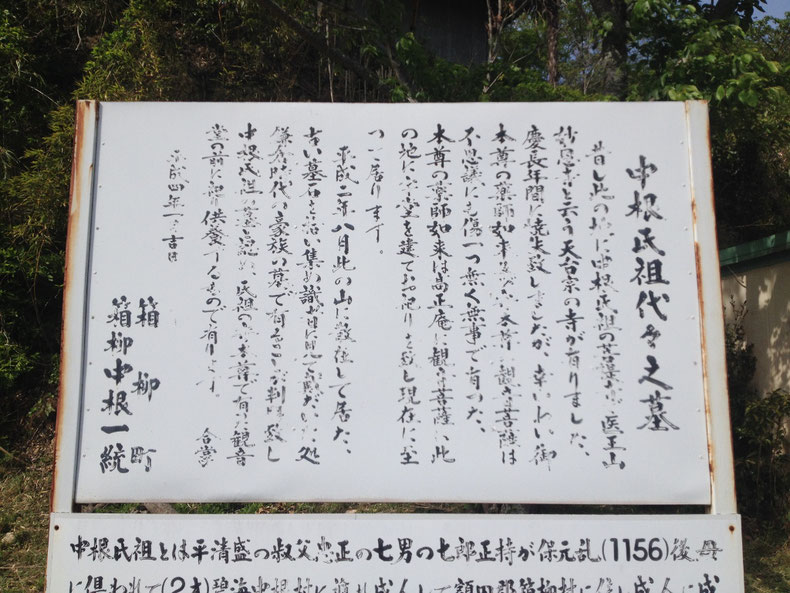 中根氏祖代々之墓
昔し此の地に中根氏祖の菩提寺医王山
妙恩寺と云う天台宗の寺が有りました、
慶長年間に焼失致しましたが、幸いわい御
本尊の薬師如来観音菩薩は
不思議にも傷一つ無く無事で有った、
本尊の薬師如来は高正庵に観音菩薩は此
の地に堂を建てお祀りを致し現在に至
って居ります。
平成二年八月此の山に散在して居た、
古い墓石を拾い集め識者に見て頂いた処
鎌倉時代の豪族の墓で有る事が判明致し
中根氏祖の墓と認め、氏祖の本尊で有る観音
堂の前に祀り供養するもので有ります。 合掌
平成四年一月吉日
箱柳町
箱柳中根一統
中根氏祖とは平清盛の叔父忠正の七男の七郎正持が保元乱(1156)後、母
に伴われて(2才)碧海中根村に